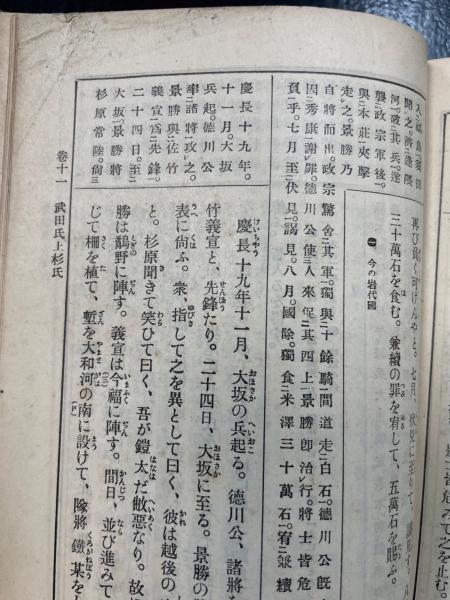 聞之。濟
河。破其兵。遂
襲政宗軍後。
與本莊夾擊
走之。景勝乃
自將而出。政宗驚舍其軍。獨與十餘騎間道走白石。德川公既
因秀康謝罪。德川公使人來促其西上。景勝卽治行。將士皆危
貳乎。七月至伏見。謁見。八月。國除。獨食米澤三十萬石。宥兼續
再び貳く可けんやと。七月、伏見に至りて
三十萬石を食む。兼續の罪を宥して、五萬石を賜ふ。
㊀ 今の岩代國
慶長十九年。
十一月。大坂
兵起。德川公
率諸將攻之。
景勝與佐竹
義宣爲先鋒。
二十四日。至
大坂。景勝將
杉原常陸。尙
慶長十九年十一月、大坂の兵起る。德川公、諸將を
竹義宣と、先鋒たり。二十四日、大坂に至る。景勝の
表に尙ふ。衆、指して之を異として曰く、彼は越後の
と。杉原聞きて笑ひて曰く、吾が鎧太だ敝惡なり。故
勝は鴫野に陣す。義宣は今福に陣す。間日、並び進みて
じて柵を植て、塹を大和河の南に設けて、隊將鐵某を
卷十一 武田氏上杉氏